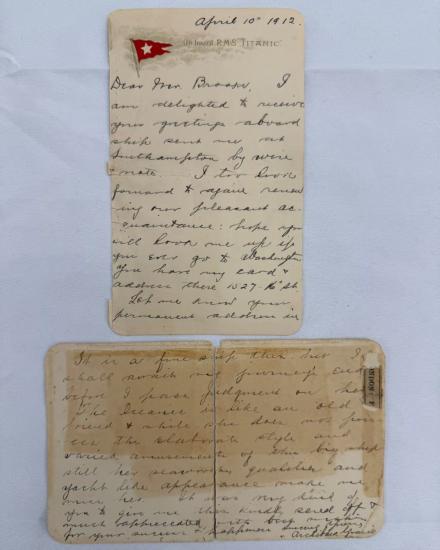 April 10th 1912.
On board R.M.S. "TITANIC"
Dear Mr. Brooks, I
am delighted to receive
your greetings aboard
ship sent me at
Southampton by wire
note. I too look
forward to again renew
ing our pleasant ac-
quaintance: hope you
will look me up if
you ever go to Washington
You have my card &
address there 1527-16th St.
Let me know your
permanent address in
It is a fine ship but I
shall await my journey's end
before I pass judgment on her
The Oceanic is like an old
friend & while she does not possess
the elaborate style and
varied amusements of this big ship
still her seaworthy qualities and
yacht like appearance make me
miss her. It was very kind of
you to give me this kindly send off &
much appreciated with best wishes
for your success & happiness
Archibald Gracie